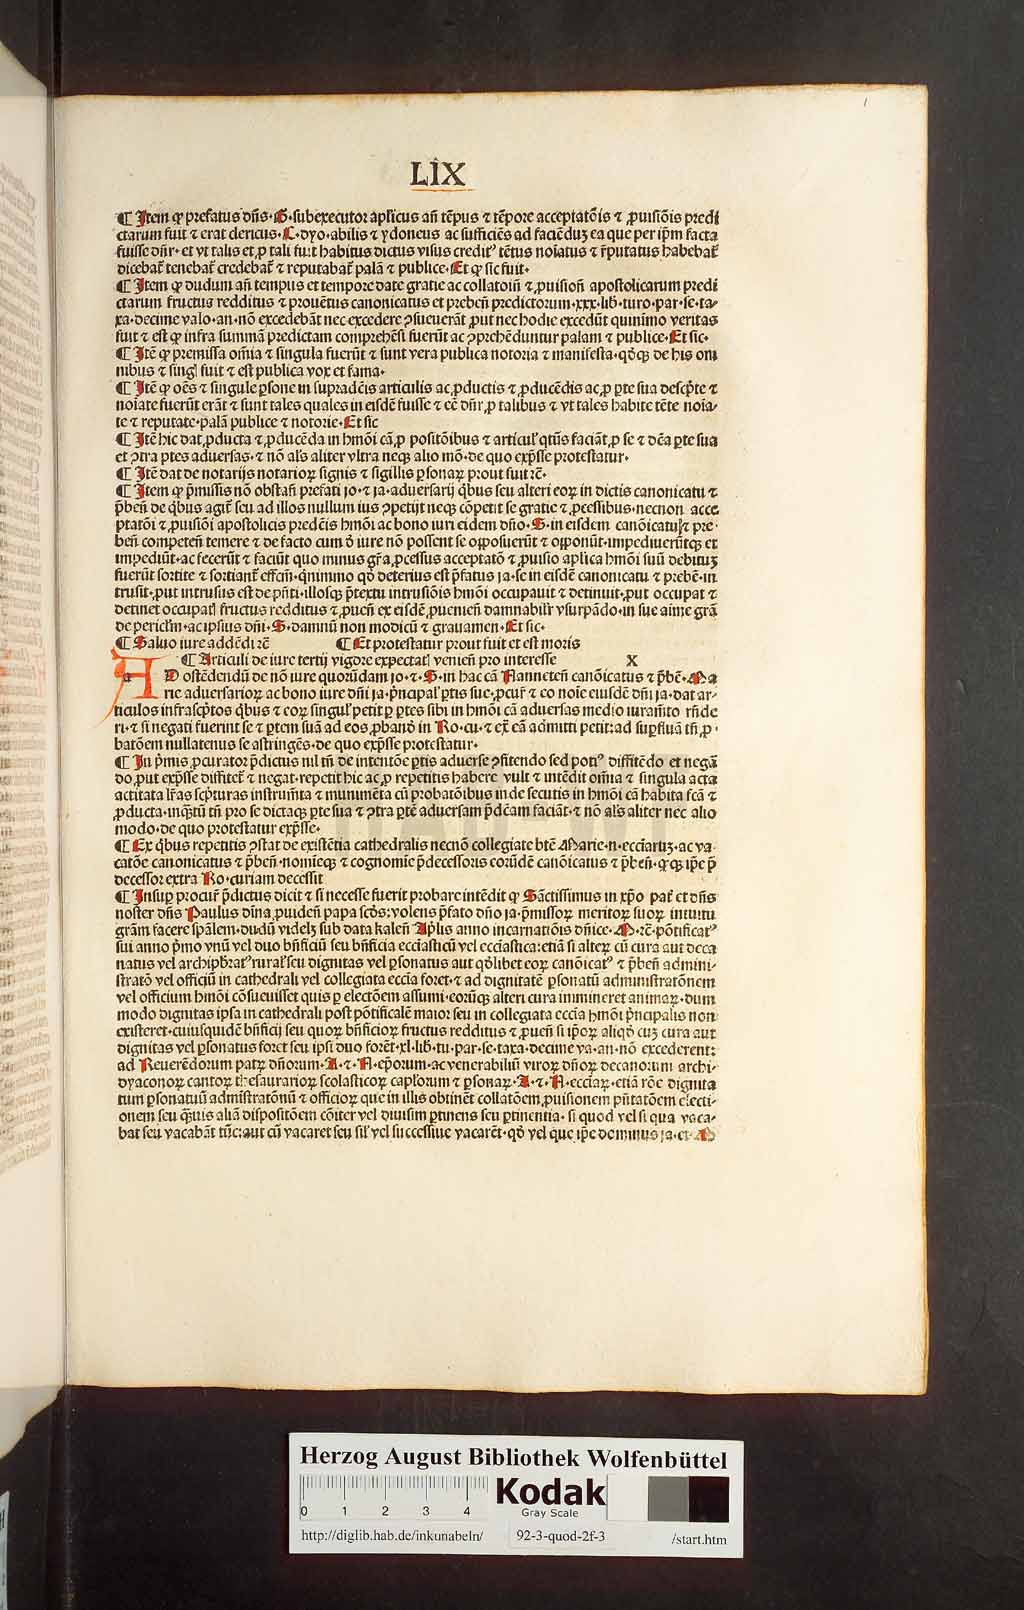 LIX
¶ Item ꝙ prefatus dñs · S · subexecutor aplicus añ tẽpus ⁊ tẽpore acceptatõis ⁊ ꝓuisiõis predi
ctarum fuit ⁊ erat clericus · L · dyo · abilis ⁊ ydoneus ac sufficiẽs ad faciẽduꝫ ea que per ip̃m facta
fuisse dñr · et vt talis et ꝓ tali fuit habitus dictus visus creditꝰ tẽtus noĩatus ⁊ r̃putatus habebat̃
dicebat̃ tenebat̃ credebat̃ ⁊ reputabat̃ palã ⁊ publice · Et ꝙ sic fuit ·
¶ Item ꝙ dudum añ tempus et tempore date gratie ac collatoiñ ⁊ ꝓuisioñ apostolicarum predi
ctarum fructus redditus ⁊ prouẽtus canonicatus et prebeñ predictorum · xxx · lib · turo · par · se · ta-
xa · decime valo · an · nõ excedebãt nec excedere ↄsueuerãt ꝓut nec hodie excedũt quinimo veritas
fuit ⁊ est ꝙ infra summã predictam comprehẽsi fuerũt ac ↄprehẽduntur palam ⁊ publice · Et sic ·
¶ Itẽ ꝙ premissa oĩa ⁊ singula fuerũt ⁊ sunt vera publica notoria ⁊ manifesta · qꝫqꝫ de his om
nibus ⁊ singl̃ fuit ⁊ est publica vox et fama ·
¶ Itẽ ꝙ oẽs ⁊ singule ꝑsone in supradc̃is articulis ac ꝓductis ⁊ ꝓducẽdis ac ꝓ ꝑte sua descp̃te ⁊
noĩate fuerũt erãt ⁊ sunt tales quales in eisdẽ fuisse ⁊ eẽ dñr ꝓ talibus ⁊ vt tales habite tẽte noĩa-
te ⁊ reputate · palã publice ⁊ notorie · Et sic
¶ Itẽ hic dat ꝓducta ⁊ ꝓducẽda in hmõi cã ꝓ positõibus ⁊ articul̃ qtũs faciãt ꝓ se ⁊ dc̃a ꝑte sua
et ↄtra ꝑtes aduersas · ⁊ nõ al̃s aliter vltra neqꝫ alio mõ · de quo exp̃sse protestatur ·
¶ Itẽ dat de notarijs notarioꝝ signis ⁊ sigillis ꝑsonaꝝ prout fuit rẽ ·
¶ Item ꝙ p̃missis nõ obstañ prefati jo · ⁊ ja · aduersarij qͥbus seu alteri eoꝝ in dictis canonicatu ⁊
p̃beñ de qͥbus agit̃ seu ad illos nullum ius ↄpetijt neqꝫ cõpetit se gratie ⁊ ꝓcessibus · necnon acce
ptatõi ⁊ ꝓuisiõi apostolicis predc̃is hmõi ac bono iuri eidem dño · S · in eisdem canõicatu ⁊ pre-
beñ competeñ temere ⁊ de facto cum ð iure nõ possent se opposuerũt ⁊ opponũt · impediuerũtqꝫ et
impediũt · ac fecerũt ⁊ faciũt quo minus gr̃a ꝓcessus acceptatõ ⁊ ꝓuisio aplica hmõi suũ debituꝫ
fuerũt sortite ⁊ sortiant̃ effcm̃ · qͥnimmo qð deterius est p̃fatus ja · se in eisdẽ canonicatu ⁊ prebẽ · in
trusit · ꝓut intrusus est de pñti · illosqꝫ p̃textu intrusiõis hmõi occupauit ⁊ detinuit · ꝓut occupat ⁊
detinet occupatl̃ fructus redditus ⁊ ꝓueñ ex eisdẽ ꝓuenieñ damnabilr̃ vsurpãdo · in sue aĩme grã
de pericl̃m · ac ipsius dñi · S · damnũ non modicũ ⁊ grauamen · Et sic ·
¶ Saluo iure addẽdi rẽ ¶ Et protestatur prout fuit et est moris
¶ Articuli de iure tertij vigore expectatl̃ venieñ pro interesse X
AD ostẽdendũ de nõ iure quorũdam jo · ⁊ · S · in hac cã Nanneteñ canõicatus ⁊ p̃bẽ · Ma
rie aduersarioꝝ ac bono iure dñi ja · p̃ncipal̃ ꝑtis sue · ꝓcur̃ ⁊ eo noĩe eiusdẽ dñi ja · dat ar-
ticulos infrascp̃tos qͥbus ⁊ eoꝝ singul̃ petit ꝑ ꝑtes sibi in hmõi cã aduersas medio iuram̃to rñde
ri · ⁊ si negati fuerint se ⁊ ꝑtem suã ad eos ꝓbandõ in Ro · cu · ⁊ ex̃ eã admitti petit: ad suꝑfluã tñ ꝓ ·
batõem nullatenus se astringẽs · de quo exp̃sse protestatur ·
¶ In p̃mis ꝓcurator p̃dictus nil tñ de intentõe ꝑtis aduerse ↄfitendo sed potiꝰ diffitẽdo et negã
do ꝓut exp̃sse diffitet̃ ⁊ negat · repetit hic ac ꝓ repetitis habere vult ⁊ intẽdit oĩa ⁊ singula acta
actitata lr̃as scp̃turas instrum̃ta ⁊ munimẽta cũ probatõibus inde secutis in hmõi cã habita fcã ⁊
ꝓducta · inqꝫtũ tñ pro se dictaqꝫ ꝑte sua ⁊ ↄtra ꝑtẽ aduersam p̃dc̃am faciãt · ⁊ nõ al̃s aliter nec alio
modo · de quo protestatur exp̃sse ·
¶ Ex qͥbus repetitis ↄstat de existẽtia cathedralis necnõ collegiate btẽ Marie · n · ecciaꝝ · ac va
catõe canonicatus ⁊ p̃beñ · nomĩeqꝫ ⁊ cognomĩe p̃decessoris eorũdẽ canõicatus ⁊ p̃beñ · ꝙqꝫ ip̃e p̃
decessor extra Ro · curiam decessit
¶ Insuꝑ procur̃ p̃dictus dicit ⁊ si necesse fuerit probare intẽdit ꝙ Sãctissimus in xp̃o pat̃ et dñs
noster dñs Paulus diũa ꝓuideñ papa scðs: volens p̃fato dño ja · p̃missoꝝ meritoꝝ suoꝝ intuitu
grãm facere sp̃alem · dudũ videlꝫ sub data kaleñ Apl̃is anno incarnatiõis dñice · M · rẽ · põtificatꝰ
sui anno p̃mo vnũ vel duo bñficiũ seu bñficia eccĩasticũ vel eccĩastica: etiã si alteꝝ cũ cura aut deca
natus vel archip̃bratꝰ rural̃ seu dignitas vel ꝑsonatus aut qð libet eoꝝ canõicatꝰ ⁊ p̃beñ admini-
stratõ vel officiũ in cathedrali vel collegiata eccĩa foret · ⁊ ad dignitatẽ ꝑsonatũ administratõnem
vel officium hmõi cõsueuisset quis ꝑ electõem assumi · eorũqꝫ alteri cura immineret animaꝝ · dum
modo dignitas ipsa in cathedrali post põtificalẽ maior seu in collegiata eccĩa hmõi p̃ncipalis non
existeret · cuiusquidẽ bñficij seu quoꝝ bñficioꝝ fructus redditus ⁊ ꝓueñ si ip̃oꝝ aliqð cuꝫ cura aut
dignitas vel ꝑsonatus foret seu ipsi duo forẽt · xl · lib · tu · par · se · taxa · decime va · an · nõ excederent:
ad Reuerẽdorum patꝝ dñorum · A · ⁊ · N · ep̃orum · ac venerabiliũ viroꝝ dñoꝝ decanorum archi-
dyaconoꝝ cantoꝝ thesaurarioꝝ scolasticoꝝ capl̃orum ⁊ ꝑsonaꝝ · A · ⁊ · N · ecciaꝝ · etiã rõe dignita
tum ꝑsonatuũ admĩstratõnũ ⁊ officioꝝ que in illis obtinẽt collatõem ꝓuisionem pñtatõem electi-
onem seu qͣuis aliã dispositõem cõiter vel diuisim ꝑtinens seu ꝑtinentia · si quod vel si qua vaca-
bat seu vacabãt tũc: aut cũ vacaret seu sil̃ vel successiue vacarẽt · qð vel que ip̃e dominus ja · et · M
Herzog August Bibliothek Wolfenbüttel
0 1 2 3 4
Kodak
Gray Scale
http://diglib.hab.de/inkunabeln/ 92-3-quod-2f-3 /start.htm